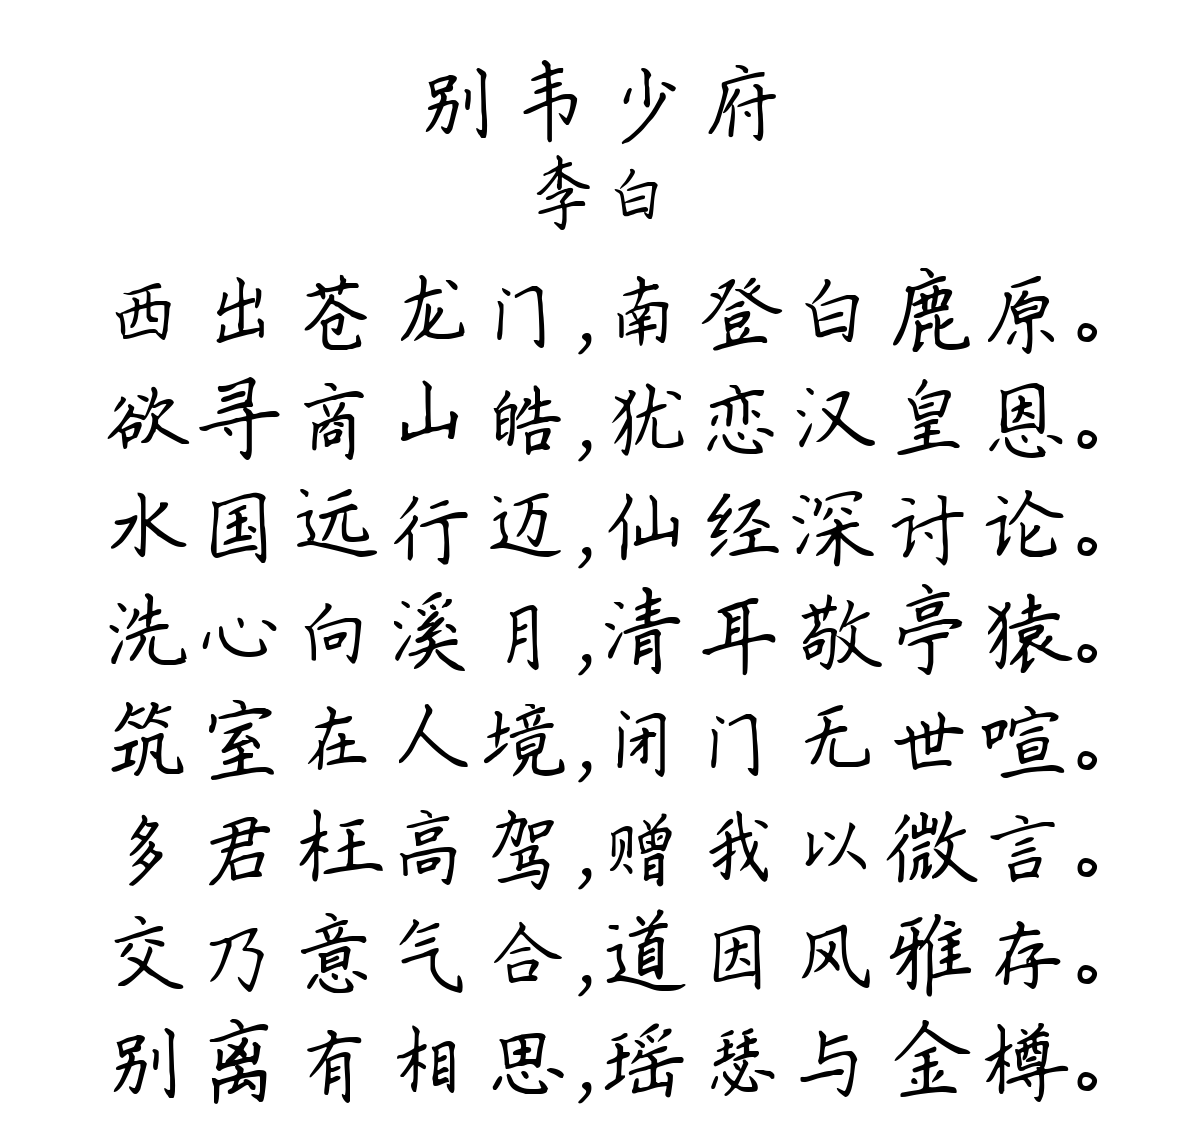 别韦少府
李白
西出苍龙门,南登白鹿原。
欲寻商山皓,犹恋汉皇恩。
水国远行迈,仙经深讨论。
洗心向溪月,清耳敬亭猿。
筑室在人境,闭门无世喧。
多君枉高驾,赠我以微言。
交乃意气合,道因风雅存。
别离有相思,瑶瑟与金樽。